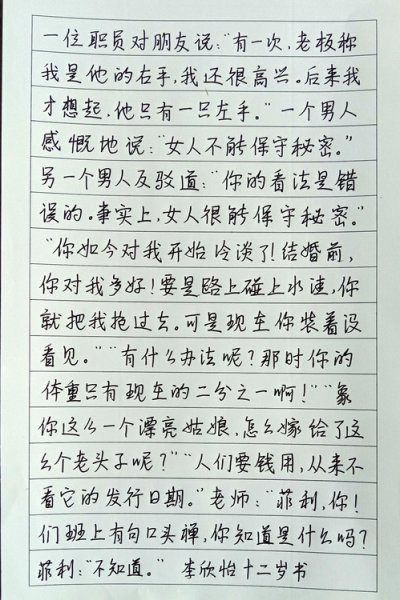 一位职员对朋友说：“有一次，老板称
我是他的右手，我还很高兴。后来我
才想起，他只有一只左手。”一个男人
感慨地说：“女人不能保守秘密。”
另一个男人反驳道：“你的看法是错
误的。事实上，女人很能保守秘密。”
“你如今对我开始冷淡了！结婚前，
你对我多好！要是路上碰上水洼，你
就把我抱过去。可是现在你装着没
看见。”“有什么办法呢？那时你的
体重只有现在的二分之一啊！”“象
你这么一个漂亮姑娘，怎么嫁给了这
么个老头子呢？”“人们要钱用，从来不
看它的发行日期。”老师：“菲利，你！
们班上有句口头禅，你知道是什么吗？
菲利：“不知道。” 李欣怡十二岁书